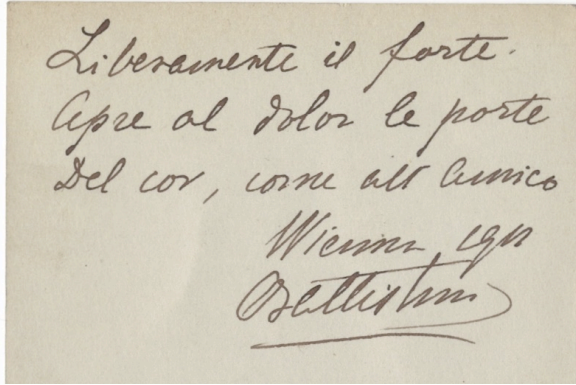 Liberamente il forte.
Apre al dolor le porte
Del cor, come all Amico
Wienna
Battistini